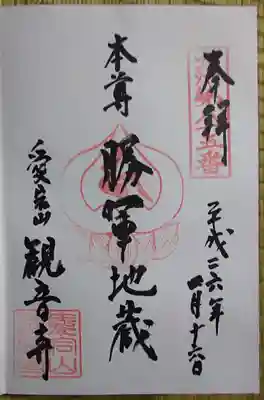 奉拝
平成二六年
月十六日
本尊
勝軍地蔵
愛宕山
観音寺